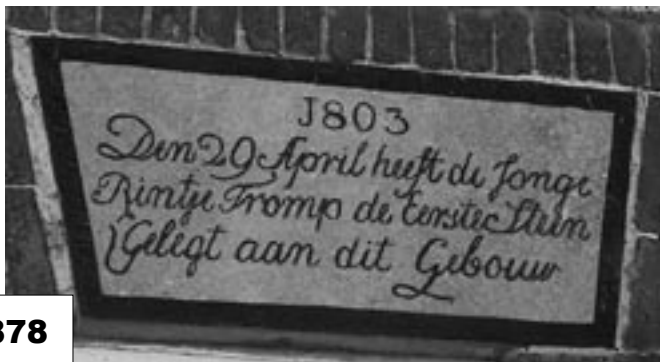 J803
Den 29 April heeft de Jonge
Rintje Tromp de Eerste Stein
Gelegt aan dit Gebouw
378